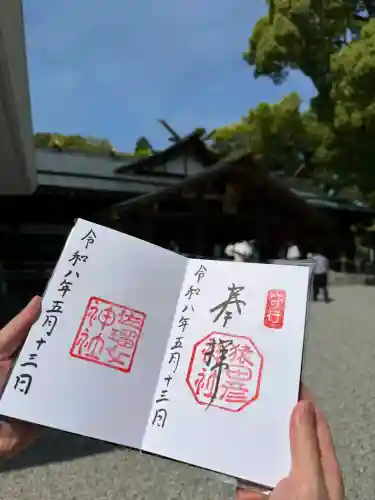 奉拝
猿田彦神社
令和八年五月十三日
佐瑠女神社
令和八年五月十三日